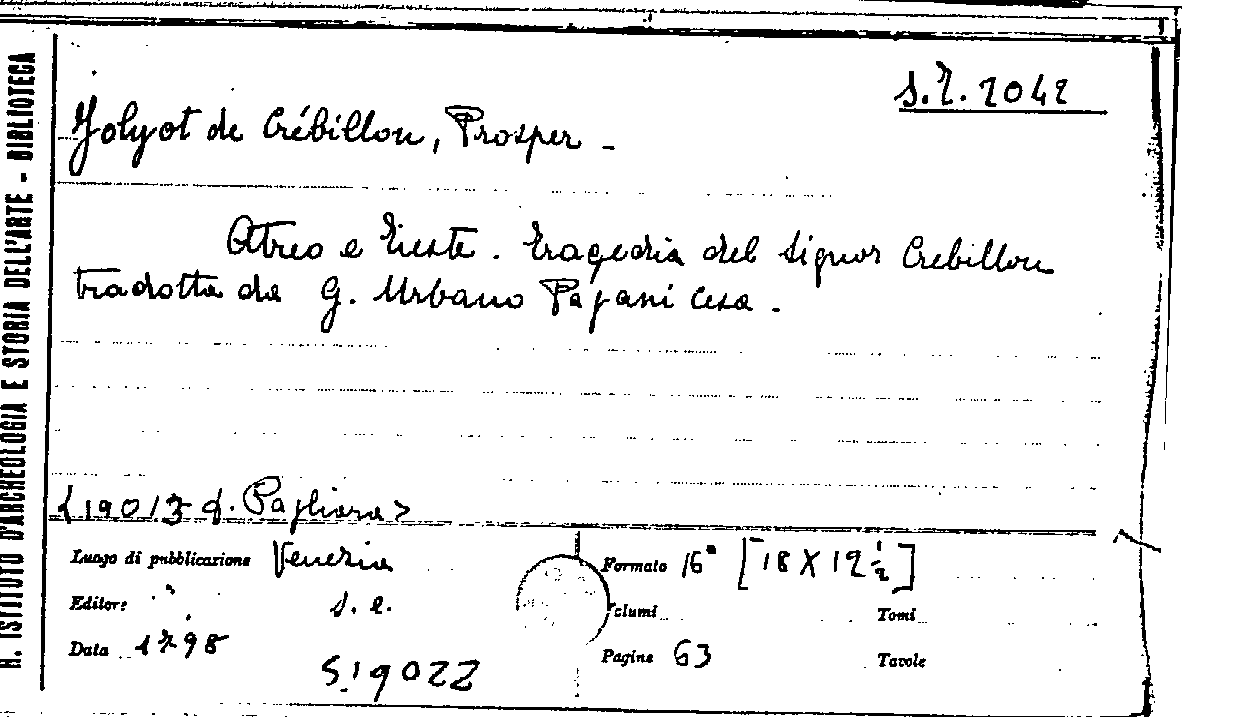 R. ISTITUTO D'ARCHEOLOGIA E STORIA DELL'ARTE - BIBLIOTECA
S.T. 2042
Jolyot de Crébillon, Prosper -
Atreo e Tieste. Tragedia del Signor Crebillon
tradotta da G. Urbano Pagani Cesa.
<19013 d. Pagliara>
Luogo di pubblicazione Venezia
Formato 16° [18 X 12 1/2]
Editore s. e.
Volumi Tomi
Data 1798
Pagine 63 Tavole
S.19022